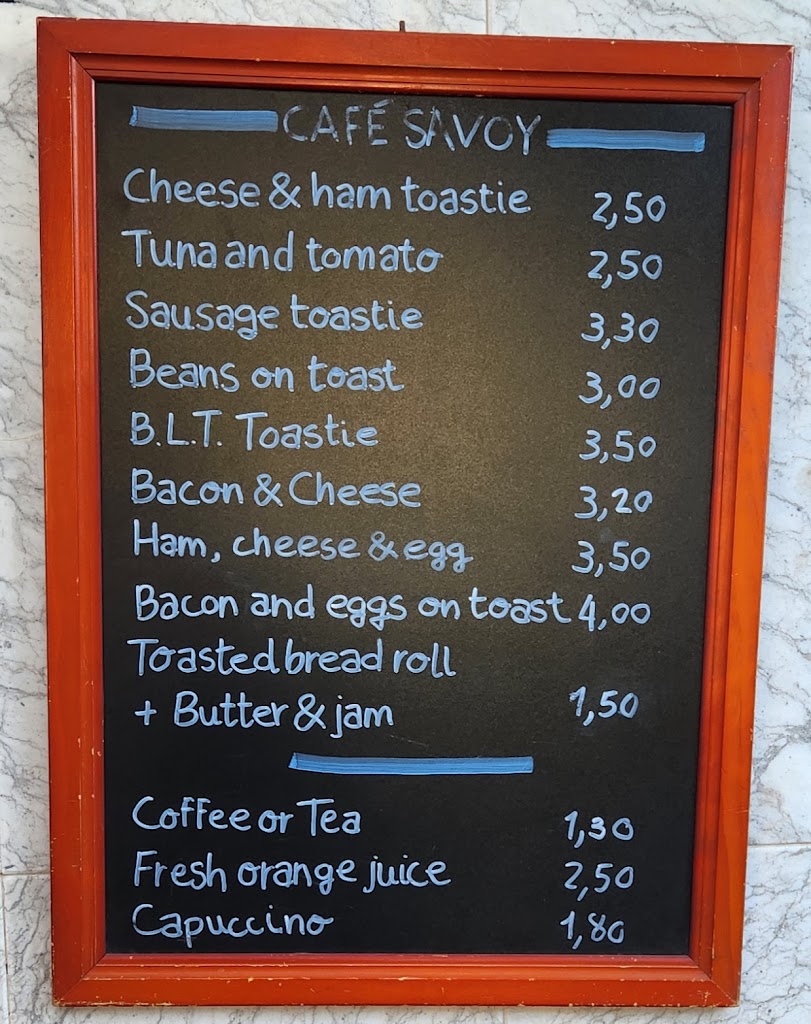 CAFÉ SAVOY
Cheese & ham toastie 2,50
Tuna and tomato 2,50
Sausage toastie 3,30
Beans on toast 3,00
B.L.T. Toastie 3,50
Bacon & Cheese 3,20
Ham, cheese & egg 3,50
Bacon and eggs on toast 4,00
Toasted bread roll
+ Butter & jam 1,50
Coffee or Tea 1,30
Fresh orange juice 2,50
Capuccino 1,80